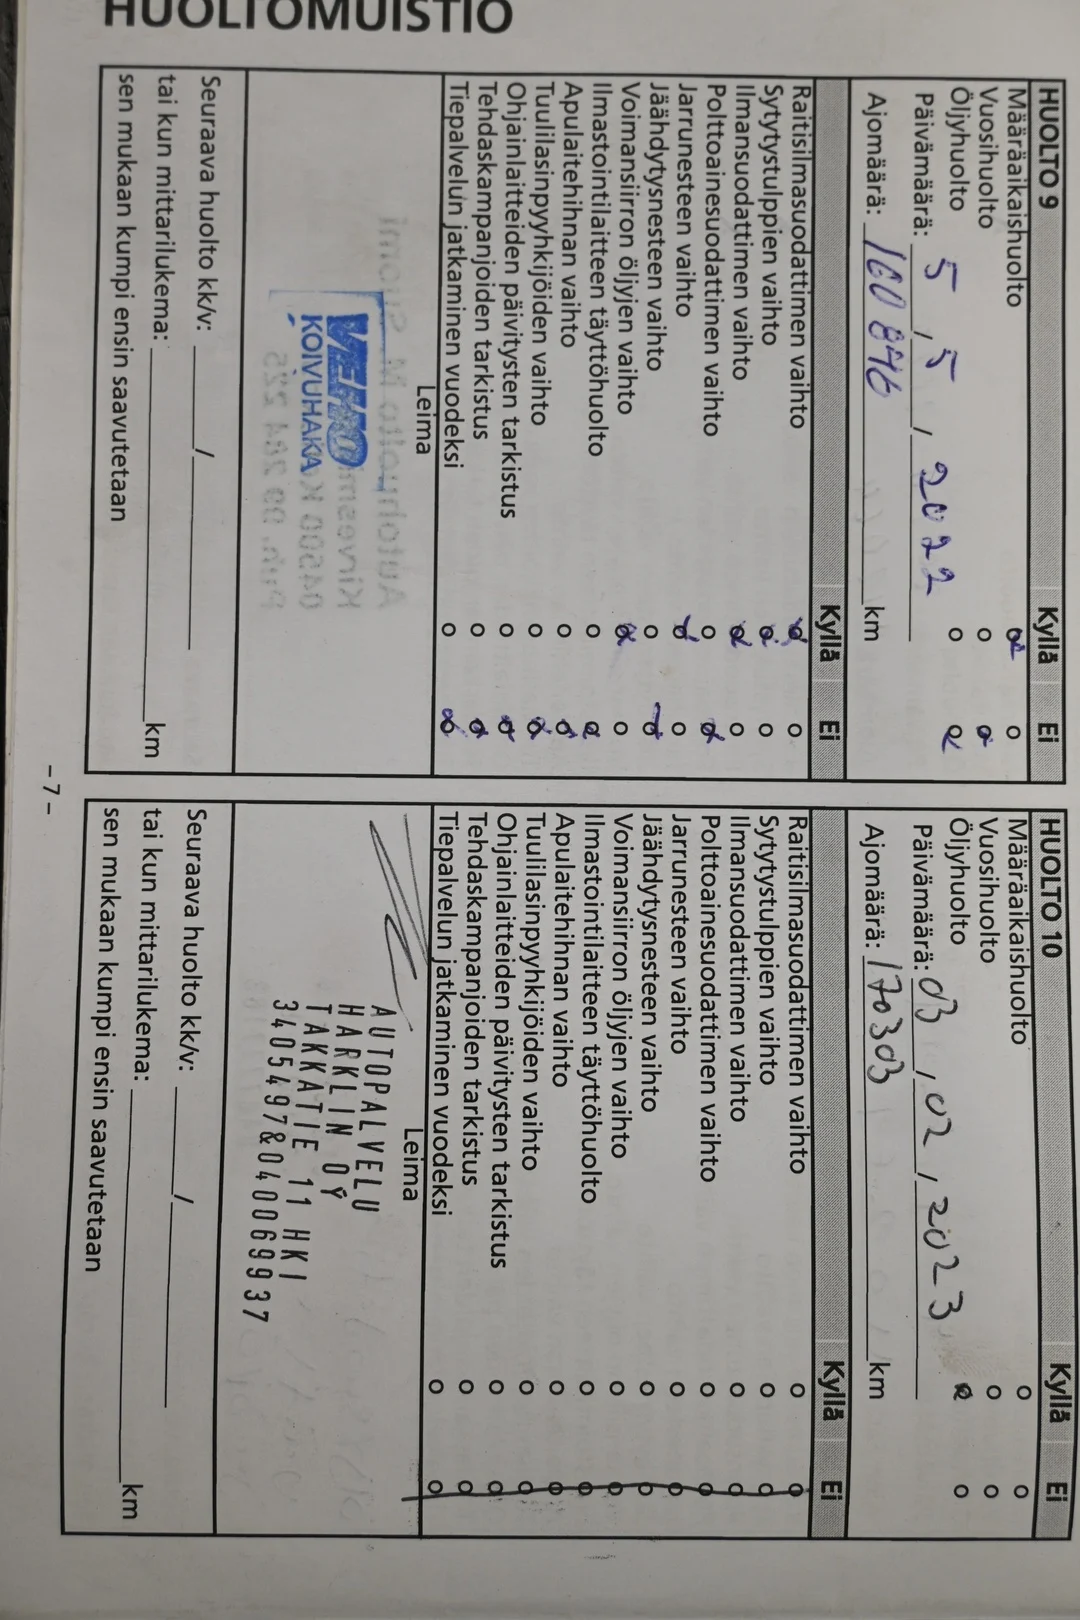 HUOLTOMUISTIO
HUOLTO 9 Kyllä Ei
Määräaikaishuolto
Vuosihuolto
Öljyhuolto
Päivämäärä: 5 / 5 / 2022
Ajomäärä: 160 876 km
Kyllä Ei
Raitisilmasuodattimen vaihto
Sytytystulppien vaihto
Ilmansuodattimen vaihto
Polttoainesuodattimen vaihto
Jarrunesteen vaihto
Jäähdytysnesteen vaihto
Voimansiirron öljyjen vaihto
Ilmastointilaitteen täyttöhuolto
Apulaitehihnan vaihto
Tuulilasinpyyhkijöiden vaihto
Ohjainlaitteiden päivitysten tarkistus
Tehdaskampanjoiden tarkistus
Tiepalvelun jatkaminen vuodeksi
Leima
VEHO
KOIVUHAKA
Seuraava huolto kk/v: /
tai kun mittarilukema: km
sen mukaan kumpi ensin saavutetaan
HUOLTO 10 Kyllä Ei
Määräaikaishuolto
Vuosihuolto
Öljyhuolto
Päivämäärä: 03 / 02 / 2023
Ajomäärä: 170303 km
Kyllä Ei
Raitisilmasuodattimen vaihto
Sytytystulppien vaihto
Ilmansuodattimen vaihto
Polttoainesuodattimen vaihto
Jarrunesteen vaihto
Jäähdytysnesteen vaihto
Voimansiirron öljyjen vaihto
Ilmastointilaitteen täyttöhuolto
Apulaitehihnan vaihto
Tuulilasinpyyhkijöiden vaihto
Ohjainlaitteiden päivitysten tarkistus
Tehdaskampanjoiden tarkistus
Tiepalvelun jatkaminen vuodeksi
Leima
AUTOPALVELU
HARKLIN OY
TAKKATIE 11 HKI
3405497&040069937
Seuraava huolto kk/v: /
tai kun mittarilukema: km
sen mukaan kumpi ensin saavutetaan
– 7 –